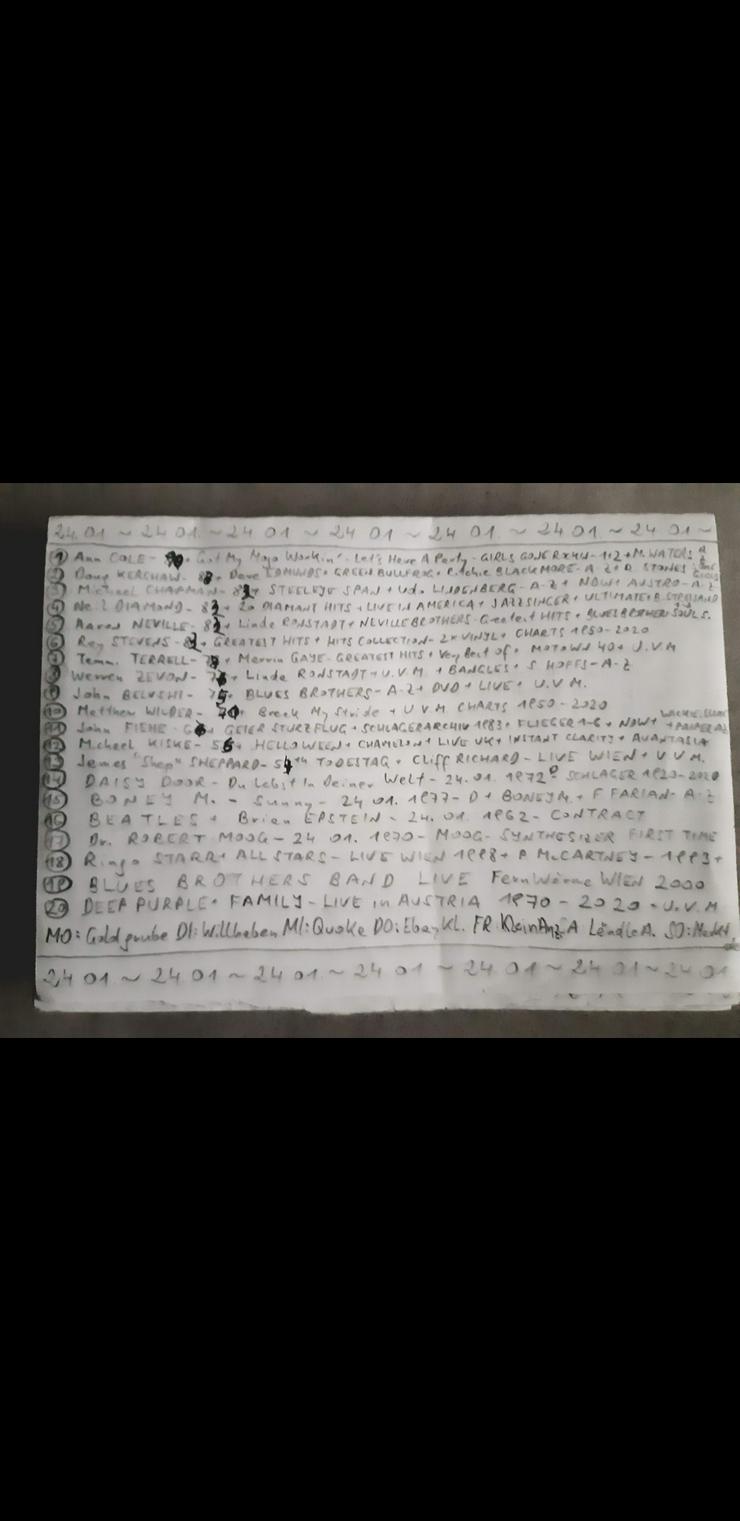 24.01 ~ 24 01. ~ 24 01 ~ 24 01 ~ 24 01 ~ 24 01 ~ 24 01 ~
① Ann COLE - + Got My Mojo Workin' - Let's Have A Party - GIRLS GONE ROCKIN - 1+2 + M. WATERS
② Doug KERSHAW - + Dave EDMUNDS + GREEN BULLFROG + Ritchie BLACKMORE - A-Z + R. STONES
③ Michael CHAPMAN - 82 + STEELEYE SPAN + Udo LINDENBERG - A-Z + NOW + AUSTRO - A-Z
④ Neil DIAMOND - 82 + 20 DIAMANT HITS + LIVE IN AMERICA + JAZZSINGER + ULTIMATE + B. STREISAND
⑤ Aaron NEVILLE - 82 + Linda RONSTADT + NEVILLE BROTHERS - Greatest HITS + BLUES BROTHER SOUL S.
⑥ Ray STEVENS - + GREATEST HITS + HITS COLLECTION - 2x VINYL + CHARTS 1950 - 2020
⑦ Tammi TERRELL - + Marvin GAYE - GREATEST HITS + Very Best of + MOTOWN 40 + U.V.M
⑧ Warren ZEVON - + Linda RONSTADT + U.V.M. + BANGLES + S HOFFS - A-Z
⑨ John BELUSHI - + BLUES BROTHERS - A-Z + DVD + LIVE + U.V.M.
⑩ Matthew WILDER - 70 + Break My Stride + U.V.M CHARTS 1950 - 2020
⑪ John FIEHE - + GEIER STURZFLUG + SCHLAGERARCHIV 1983 + FLIEGER 1-6 + NDW +
⑫ Michael KISKE - 56 + HELLOWEEN + CHAMELEON + LIVE UK + INSTANT CLARITY + AVANTASIA
⑬ James "Shep" SHEPPARD - TODESTAG + Cliff RICHARD - LIVE WIEN + U.V.M.
⑭ DAISY DOOR - Du Lebst In Deiner Welt - 24.01. 1972 SCHLAGER 1920 - 2020
⑮ BONEY M. - Sunny - 24 01. 1977 - D + BONEY M. + F FARIAN - A-Z
⑯ BEATLES + Brian EPSTEIN - 24. 01 1962 - CONTRACT
⑰ Dr. ROBERT MOOG - 24 01. 1970 - MOOG - SYNTHESIZER FIRST TIME
⑱ Ringo STARR + ALL STARS - LIVE WIEN 1998 + P McCARTNEY - 1993 +
⑲ BLUES BROTHERS BAND LIVE FernWärme WIEN 2000
⑳ DEEP PURPLE + FAMILY - LIVE in AUSTRIA 1970 - 2020 - U.V.M
MO: Goldgrube DI: Willhaben MI: Quoke DO: Ebay KL. FR. KleinAnz. A LändleA. SO: Markt
24 01 ~ 24 01 ~ 24 01 ~ 24 01 ~ 24 01 ~ 24 01 ~ 24 01